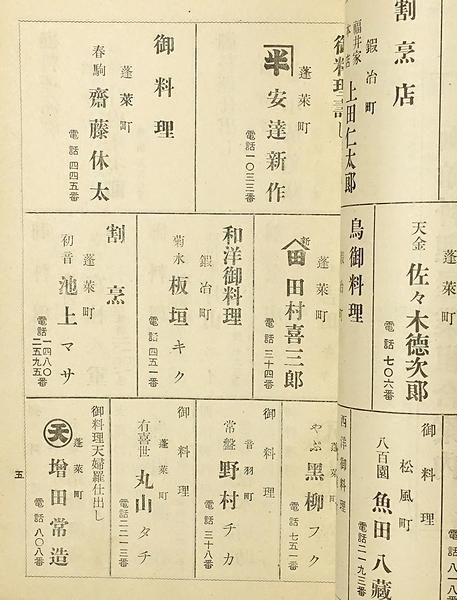 割烹店
鍛冶町
福井家
上田仁太郎
御料理寿し
蓬萊町
半 安達新作
電話一〇三三番
御料理
蓬萊町
春駒 齋藤休太
電話四四五番
天金 佐々木德次郎
電話七〇六番
鳥御料理
鍛冶町
蓬萊町
新 田 田村喜三郎
電話三十四番
和洋御料理
鍛冶町
菊水 板垣キク
電話四五一番
割烹
蓬萊町
初音 池上マサ
電話 一四八〇番
二五九五番
御料理
松風町
八百園 魚田八藏
電話二一九三番
西洋御料理
蓬萊町
やぶ 黑柳フク
電話七五一番
御料理
音羽町
常盤 野村チカ
電話三十八番
御料理
蓬萊町
有喜世 丸山タチ
電話二二一三番
御料理天婦羅仕出し
蓬萊町
天 增田常造
電話八〇八番
五